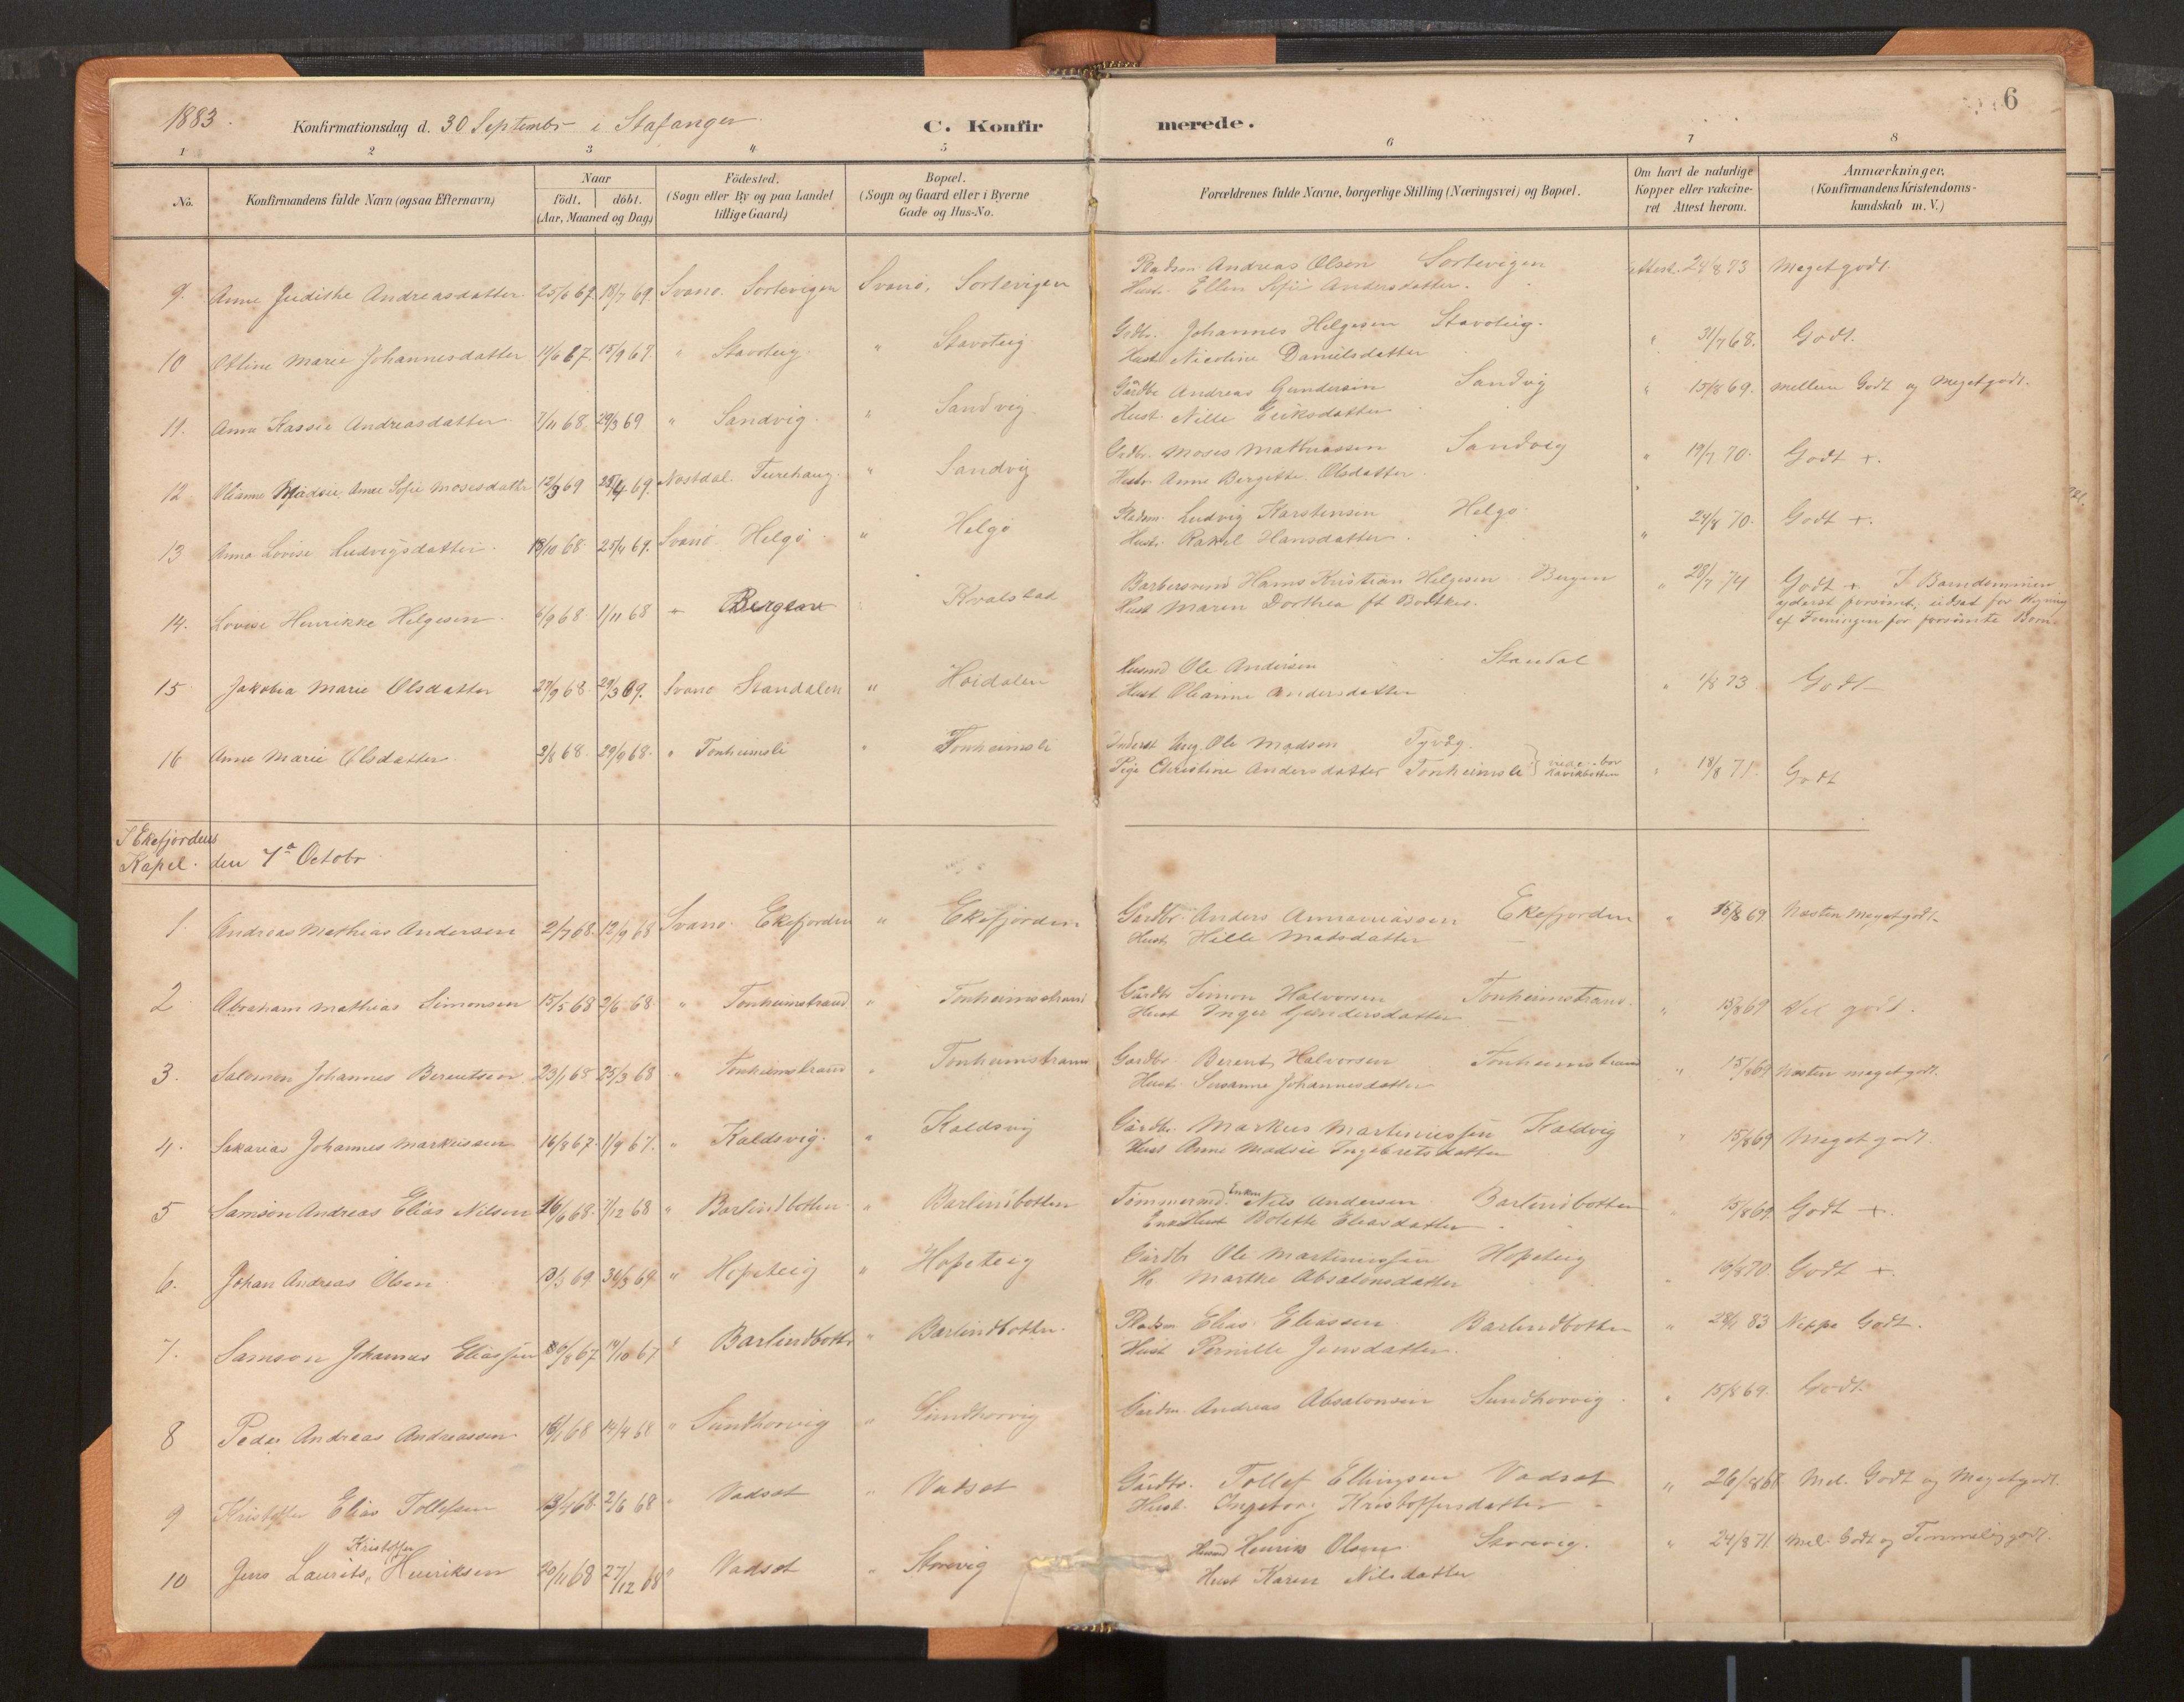 1883.
Konfirmationsdag d. 30 Septembr i Stafanger.
C. Konfirmerede.
6
1 2 3 4 5 6 7 8
No.
Konfirmandens fulde Navn (ogsaa Efternavn)
Naar
födt. döbt.
(Aar, Maaned og Dag)
Födested.
(Sogn eller By og paa Landet
tillige Gaard)
Bopæl.
(Sogn og Gaard eller i Byerne
Gade og Hus-No.
Forældrenes fulde Navne, borgerlige Stilling (Næringsvei) og Bopæl.
Om havt de naturlige
Kopper eller vakcine-
ret Attest herom.
Anmærkninger.
(Konfirmandens Kristendoms-
kundskab m. V.)
9. Anne Judithe Andreasdatter 25/6 69 18/7 69. Svanö. Sortevigen Svanö, Sortevigen Pladsm Andreas Olsen Sortevigen attest. 24/8 73 Meget godt.
Hust. Ellen Sofie Andersdatter.
10 Ottine Marie Johannesdatter 11/6 67. 15/9 67. " Stavoteig. " Stavoteig Gdbr. Johannes Helgesen Stavoteig. " 31/7 68. Godt.
Hust Nicoline Danielsdatter
11. Anna Kassie Andreasdatter 7/11 68. 29/3 69 " Sandvig. " Sandvig. Gårdbr Andreas Gundersen Sandvig " 15/8 69. mellem Godt og Meget godt.
Hust. Nille Eriksdatter
12 Olianna Madsie, Anne Sofie Mosesdatter 12/3 69 25/4 69. Nøstdal. Turehaug. " Sandvig Grdbr. Moses Mathiassen Sandvig " 19/7 70. Godt +.
Hustr Anne Bergitte Olsdatter.
13 Anna Lovise Ludvigsdatter. 13/10 68. 25/4 69. Svanö Helgö " Helgö Pladsm. Ludvig Karstensen Helgo. " 24/8 70. Godt +.
Hustr. Rakel Hansdatter.
14. Lovise Henrikke Helgesen. 6/9 68. 1/11 68 " Bergen Kvalstad Barbersvend Hans Kristian Helgesen Bergen " 28/7 74 Godt + I Barndommen
Hust Maren Dorthea ft Bødtker. yderst forsömt, udsat for
af Foreningen for forsömte Börn
15. Jakobea Marie Olsdatter 27/9 68. 29/3 69. Svanö Standalen " Høidalen Husmd Ole Andersen Standal " 1/8 73 Godt
Hust Olianne Andersdatter
16 Anne Marie Olsdatter 3/8 68. 29/9 68. " Tonheimsli " Tonheimsli Inderst Ung. Ole Madsen Tyvåg.
Pige Christine Andersdatter Tonheimsli " 18/8 71. Godt
I Ekefjordens
Kapel. den 7de Octobr
1. Andreas Mathias Andersen 2/7 68. 12/9 68 Svanö. Ekefjorden " Ekefjorden Gardbr. Anders Annaniassen Ekefjorden " 15/8 69 Næsten Meget godt.
Hust Hille Matsdatter
2 Abraham Mathias Simonsen 15/5 68 2/6 68. " Tonheimstrand " Tonheimsstrand Gårdbr Simon Halvorsen Tonheimstrand. " 15/8 69 godt.
Hust Inger Gundersdatter
3. Salomon Johannes Berentsen 23/1 68 25/3 68 " Tonheimstrand " Tonheimstrand Gardbr. Berent Halvorsen Tonheimstrand " 15/8 69 Næsten meget godt.
Hust. Susanne Johannesdatter
4. Sakarias Johannes Markussen 16/8 67. 1/9 67. " Kaldsvig. " Kaldsvig Gårdbr. Markus Martinussen Kaldvig " 15/8 69 Meget godt.
Hust Anne Madsie Ingebretsdatter
5 Samson Andreas Elias Nilsen 16/6 68. 7/12 68 " Barlindbotten. " Barlindbotten Tömmermd. Nils Andersen Barlindbotten " 15/8 69 Godt +.
Hust Bolette Eliasdatter
6. Johan Andreas Olsen 13/3 69. 30/3 69 " Hopsteig " Hopsteig Gårdbr Ole Martinussen Hopsteig 16/8 70 Godt +.
H. Marthe Absalonsdatter
7. Samson Johannes Eliassen 30/8 67 14/10 67 " Barlindbotten " Barlindbotten. Pladsm Elias Eliassen Barlindbotten " 28/1 83 Neppe Godt.
Hust Pernille Jensdatter.
8 Peder Andreas Andreassen. 16/1 68 14/4 68 " Sundhorvig " Sundhorvig Gårdm. Andreas Absalonsen Sundhorvig. " 15/8 69. Godt.
9 Kristoffer Elias Tollefsen 13/4 68. 2/6 68 " Vadset " Vadset Gårdbr. Tollef Ellingsen Vadset " 26/8 68 Mel. Godt og Meget godt.
Hust. Ingebor Kristoffersdatter
Kristoffer
10 Jens Laurits, Henriksen 20/11 68 27/12 68 " Vadset " Storevig Husmd Henrik Olsen Storevig. " 24/8 71 Mel. Godt og Temmelig godt.
Hust Karen Nilsdatter